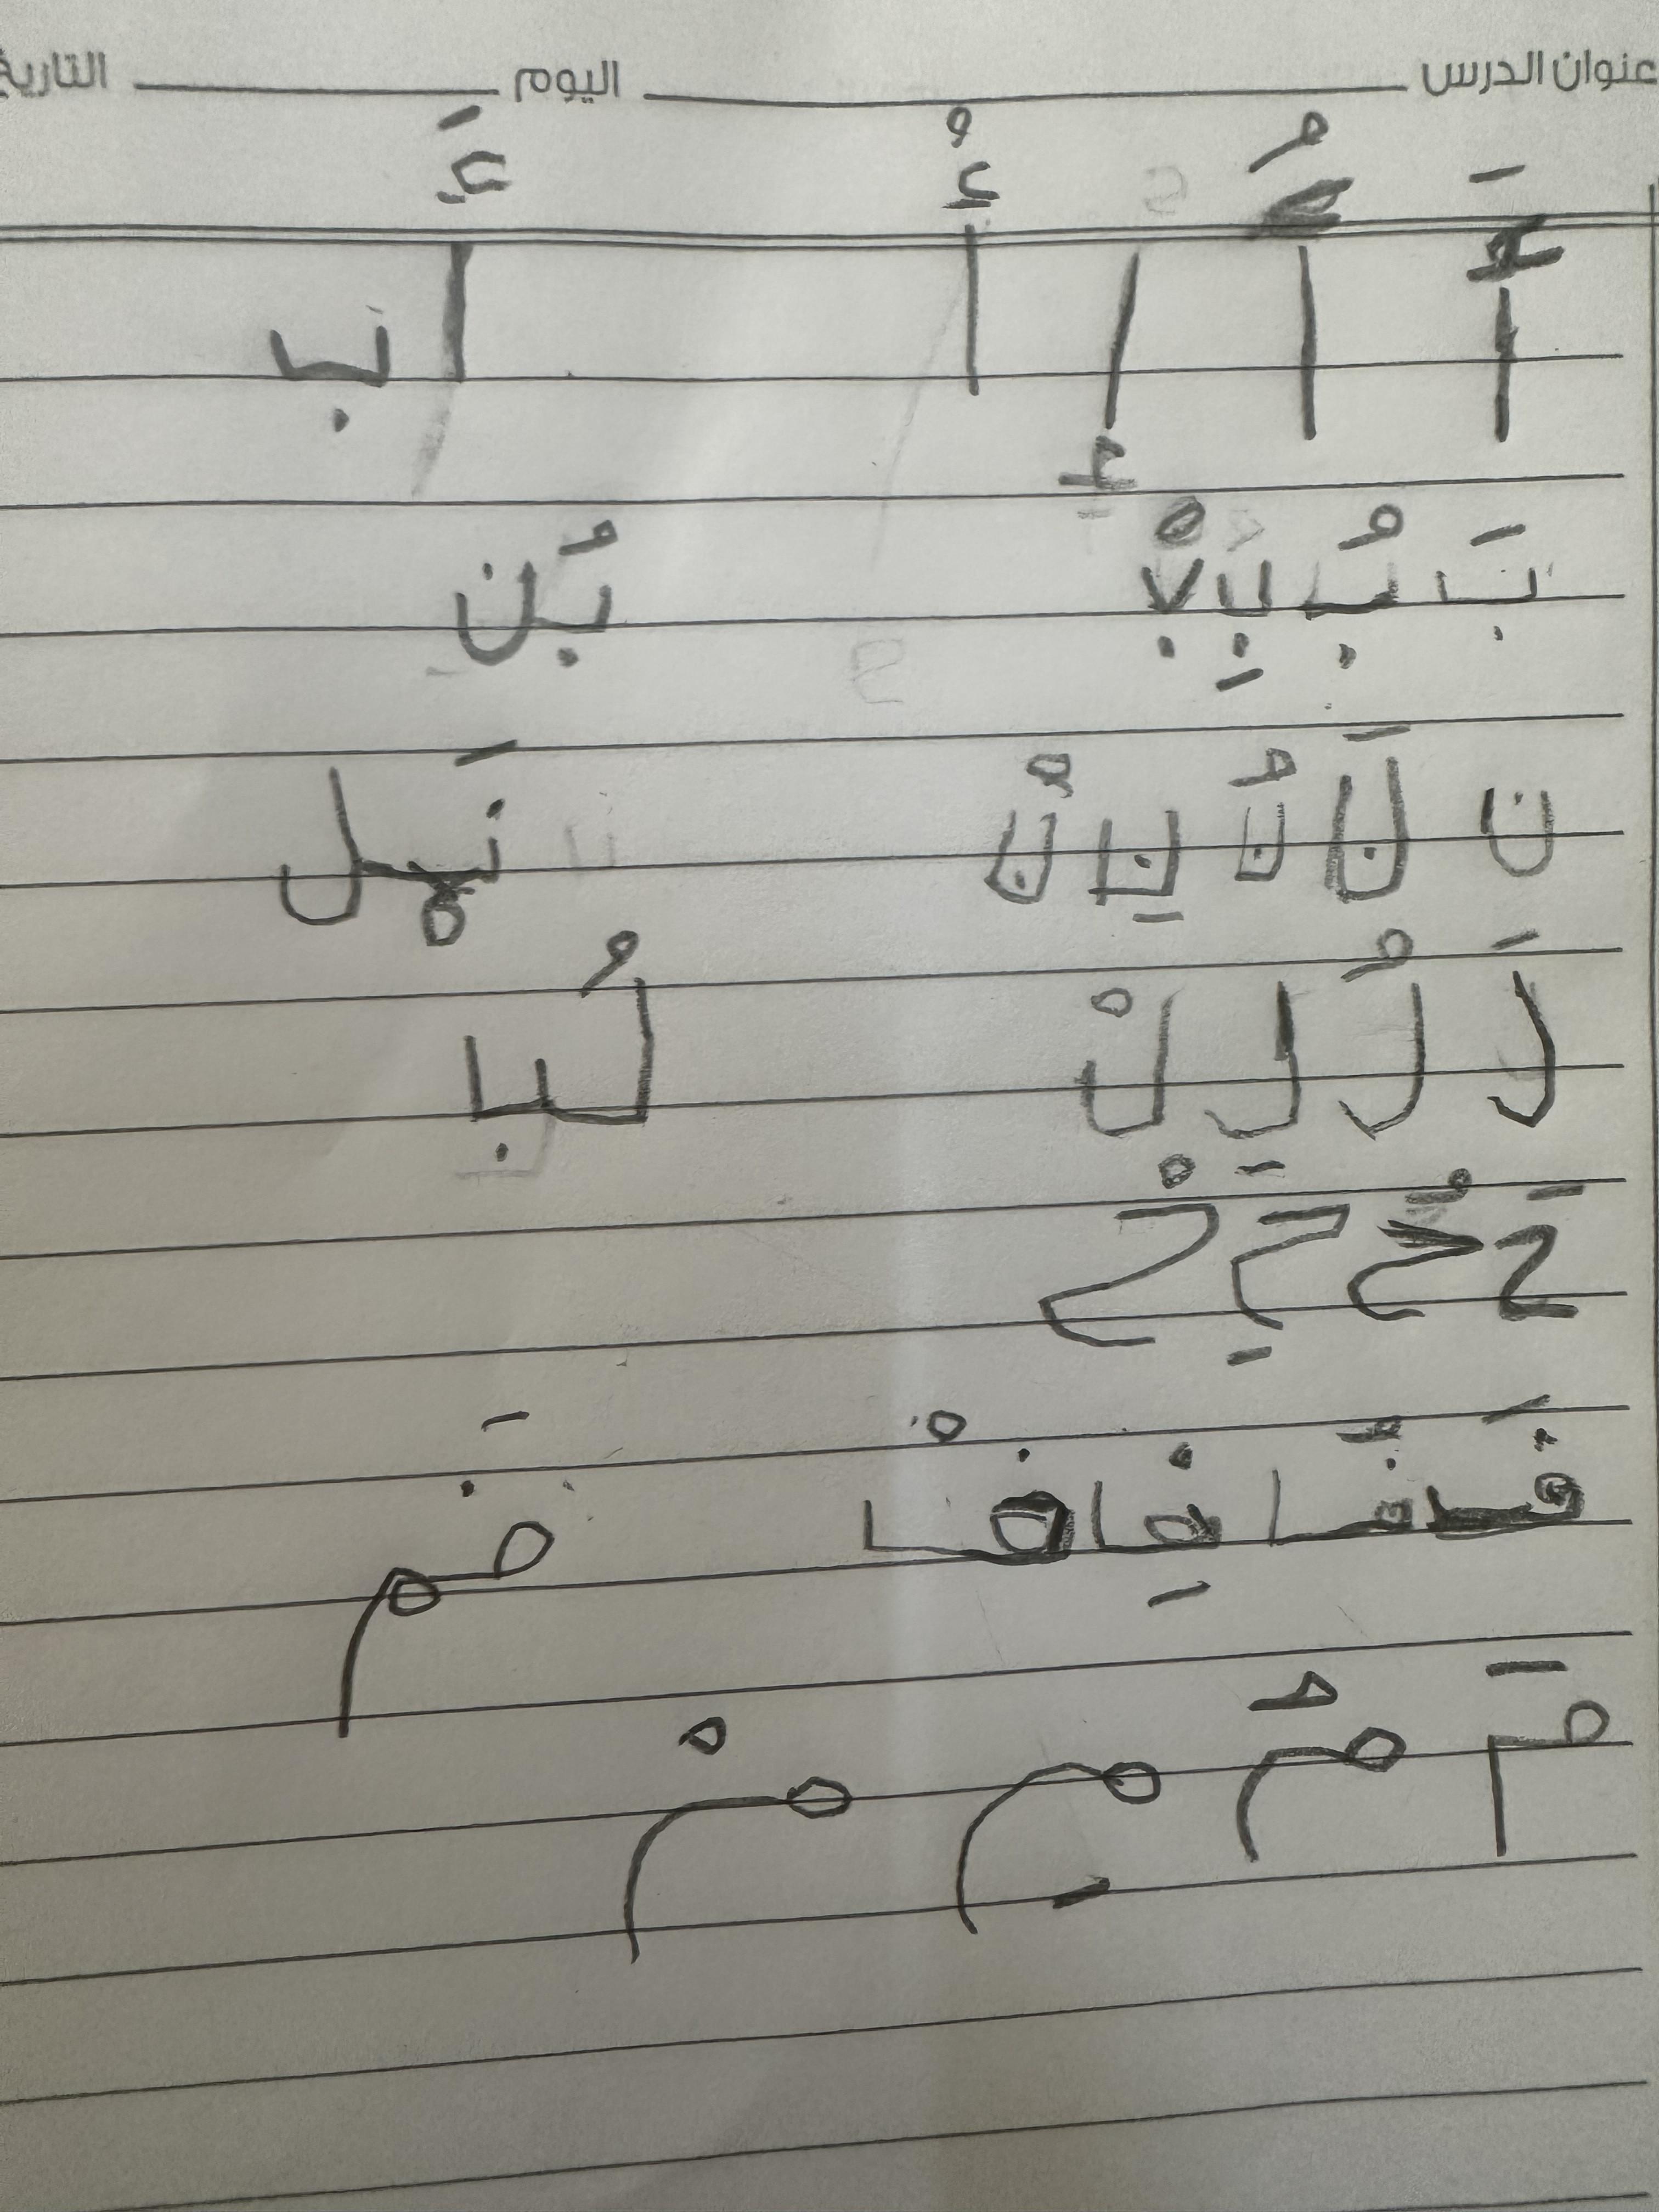 عنوان الدرس اليوم التاريخ
أَ أُ إِ أْ أَب
بَ بُ بِ بْ بُن
ن نَ نُ نِ نْ نَهل
لَ لُ لِ لْ لُبا
حَ حُ حِ حْ
فَ فُ فِ فْ فَم
مَ مُ مِ مْ